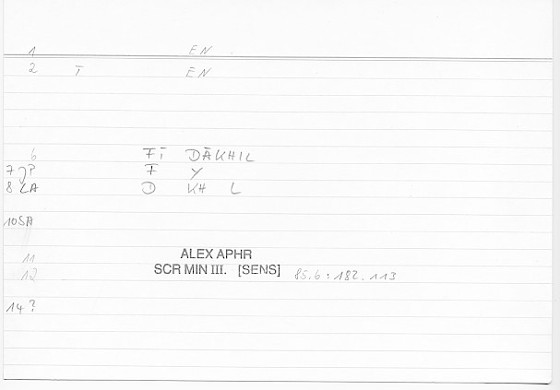 1 EN
2 T EN
6 FĪ DĀKHIL
7 )? F Y
8 LA D KH L
10 SA
11
ALEX APHR
12
SCR MIN III. [SENS] 85.6 : 182.113
14 ?